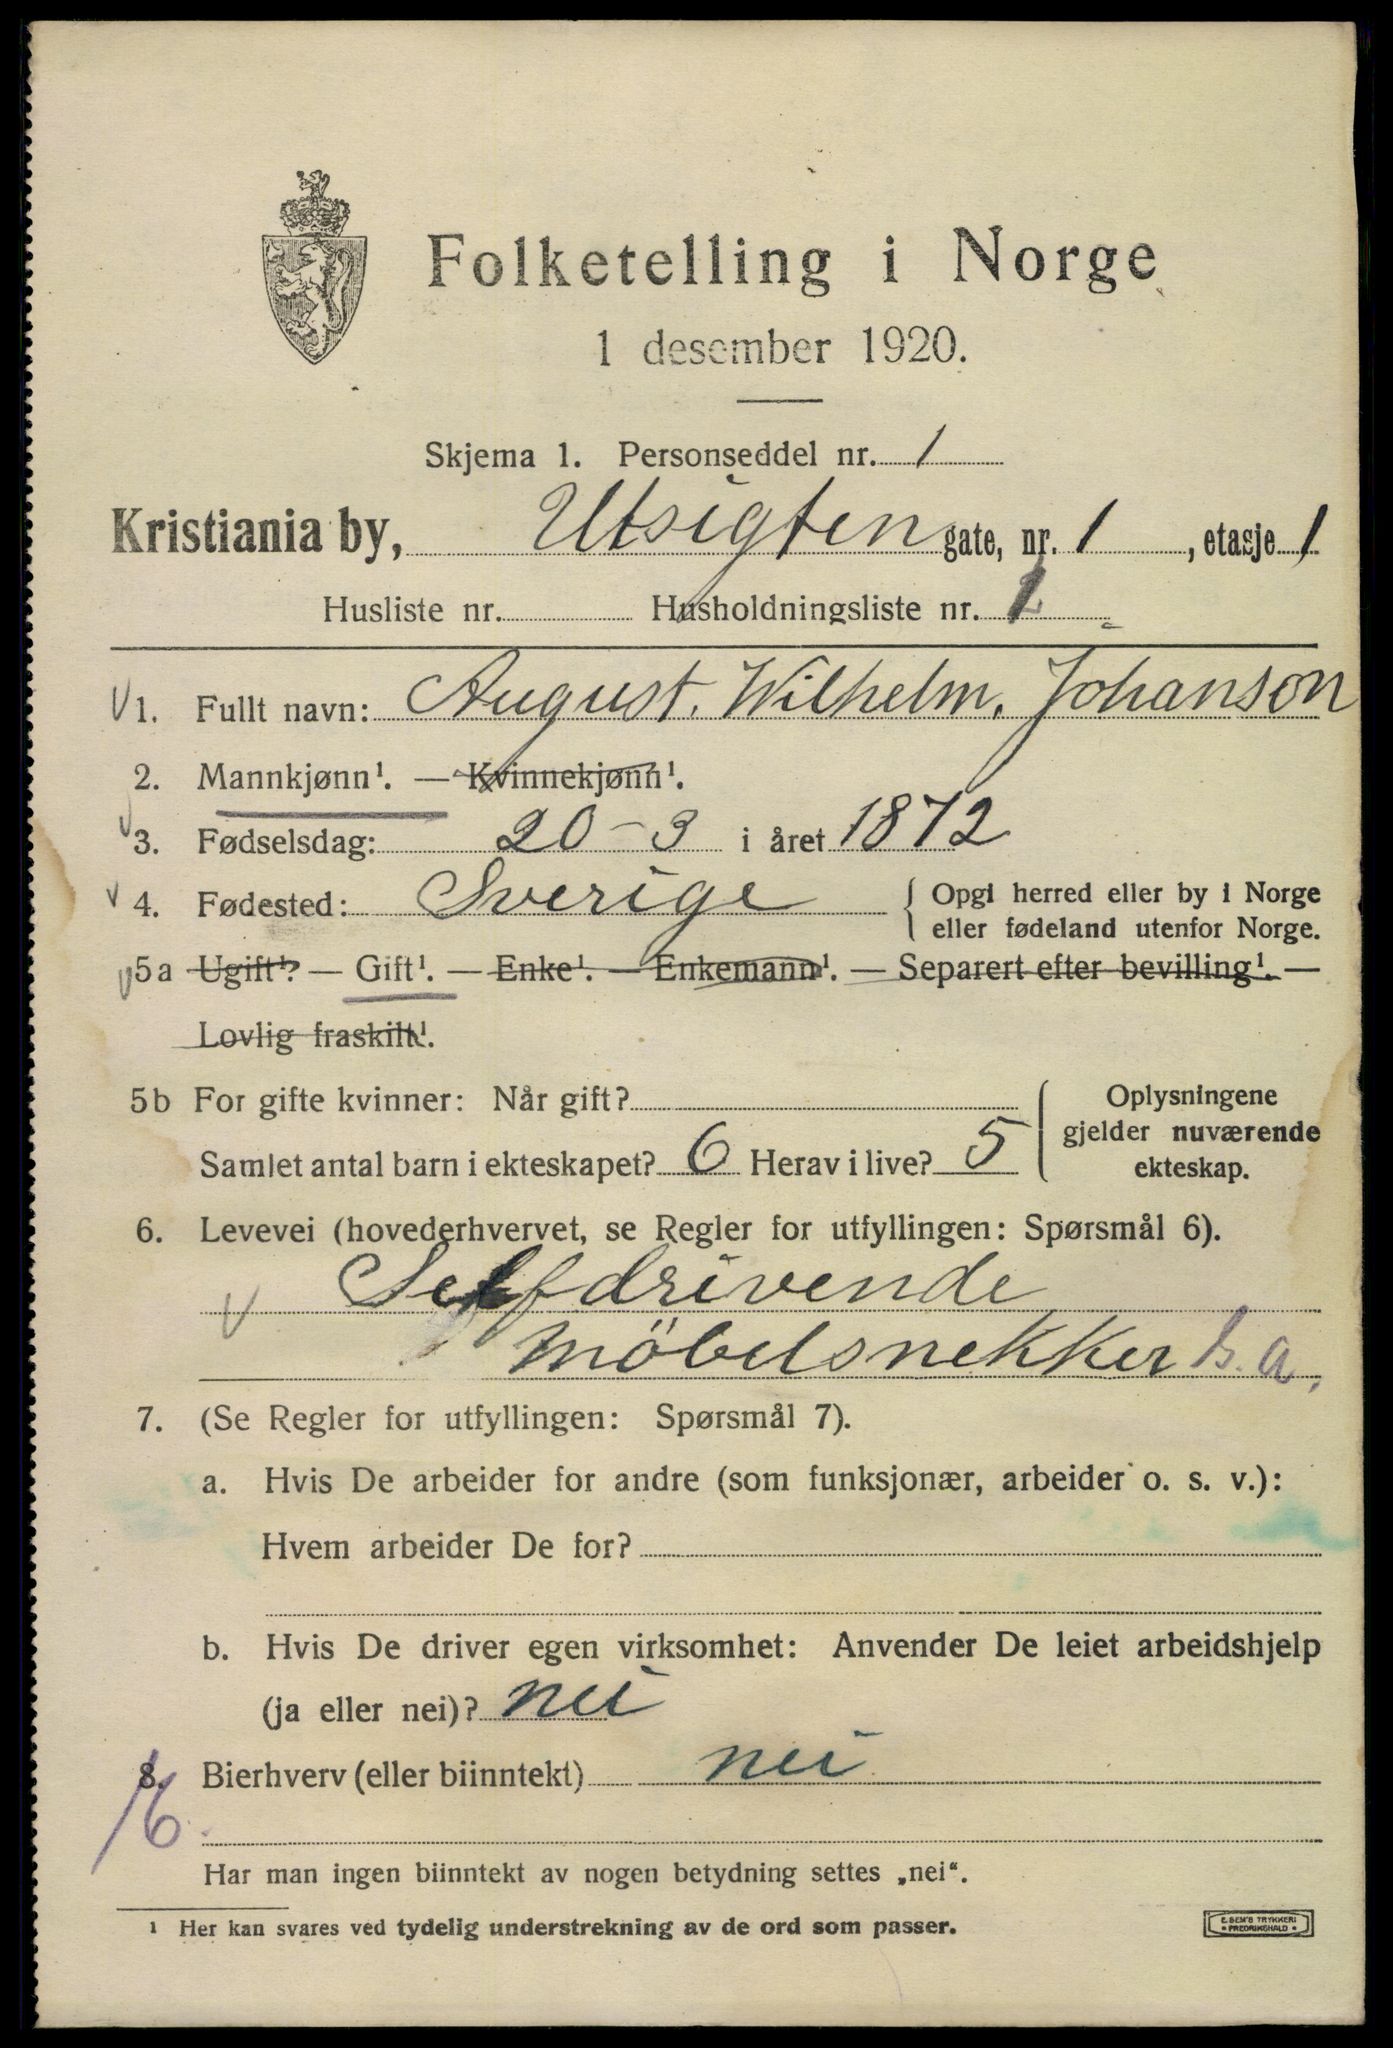 Folketelling i Norge
1 desember 1920.
Skjema 1. Personseddel nr. 1
Kristiania by, Utsigten gate, nr. 1, etasje 1
Husliste nr. Husholdningsliste nr. 1
1. Fullt navn: August. Wilhelm. Johanson
2. Mannkjønn¹. — Kvinnekjønn¹.
3. Fødselsdag: 20-3 i året 1872
4. Fødested: Sverige { Opgi herred eller by i Norge
eller fødeland utenfor Norge.
5a Ugift¹? — Gift¹. — Enke¹. — Enkemann¹. — Separert efter bevilling¹. —
Lovlig fraskilt¹.
5b For gifte kvinner: Når gift?
Samlet antal barn i ekteskapet? 6 Herav i live? 5
Oplysningene
gjelder nuværende
ekteskap.
6. Levevei (hovederhvervet, se Regler for utfyllingen: Spørsmål 6).
Selfdrivende
möbelsnekker h.a.
7. (Se Regler for utfyllingen: Spørsmål 7).
a. Hvis De arbeider for andre (som funksjonær, arbeider o. s. v.):
Hvem arbeider De for?
b. Hvis De driver egen virksomhet: Anvender De leiet arbeidshjelp
(ja eller nei)? nei
8. Bierhverv (eller biinntekt) nei
Har man ingen biinntekt av nogen betydning settes „nei“.
¹ Her kan svares ved tydelig understrekning av de ord som passer.
E. SEM'S TRYKKERI
FREDRIKSHALD